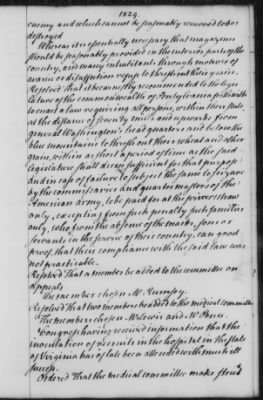 1829.
enemy and which cannot be seasonably removed to be
destroyed
Whereas it is essentially necessary that magazines
should be seasonably provided in the interior parts of the
country, and many inhabitants through motives of
avarice or disaffection refuse to thresh out their grain.
Resolved That it be earnestly recommended to the legis
lature of the commonwealth of Pensylvania forthwith
to enact a law requiring all persons, within their state,
at the distance of seventy miles and upwards from
general Washington's head quarters and below the
blue mountains to thresh out their wheat and other
grain, within as short a period of time as the said
legislature shall deem sufficient for that purpose.
And in case of failure to subject the same to seizure
by the commissaries and quarter masters of the
American army, to be paid for at the price of straw
only, excepting from such penalty such families
only, who from the absence of the master, sons or
servants in the service of their country can good
proof, that their compliance with the said law was
not practicable.
Resolved That a member be added to the committee on
Appeals
The member chosen Mr Rumsey.
Resolved That two members be added to the medical committee
The members chosen Mr Lewis and Mr Penn.
Congress having received information that the
inoculation of recruits in the hospital in the state
of Virginia has of late been attended with much ill
success.
Ordered That the medical committee make strict